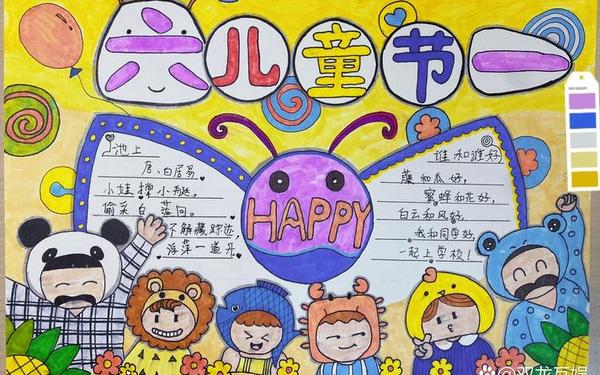 六儿童节一
池上
唐、白居易
小娃撑小艇,
偷采白莲回。
不解藏踪迹
浮萍一道开
HAPPY
谁和谁好
藤和瓜好,
蜜蜂和花好,
白云和风好,
我和同学好,
一起上学校!
双龙互娱